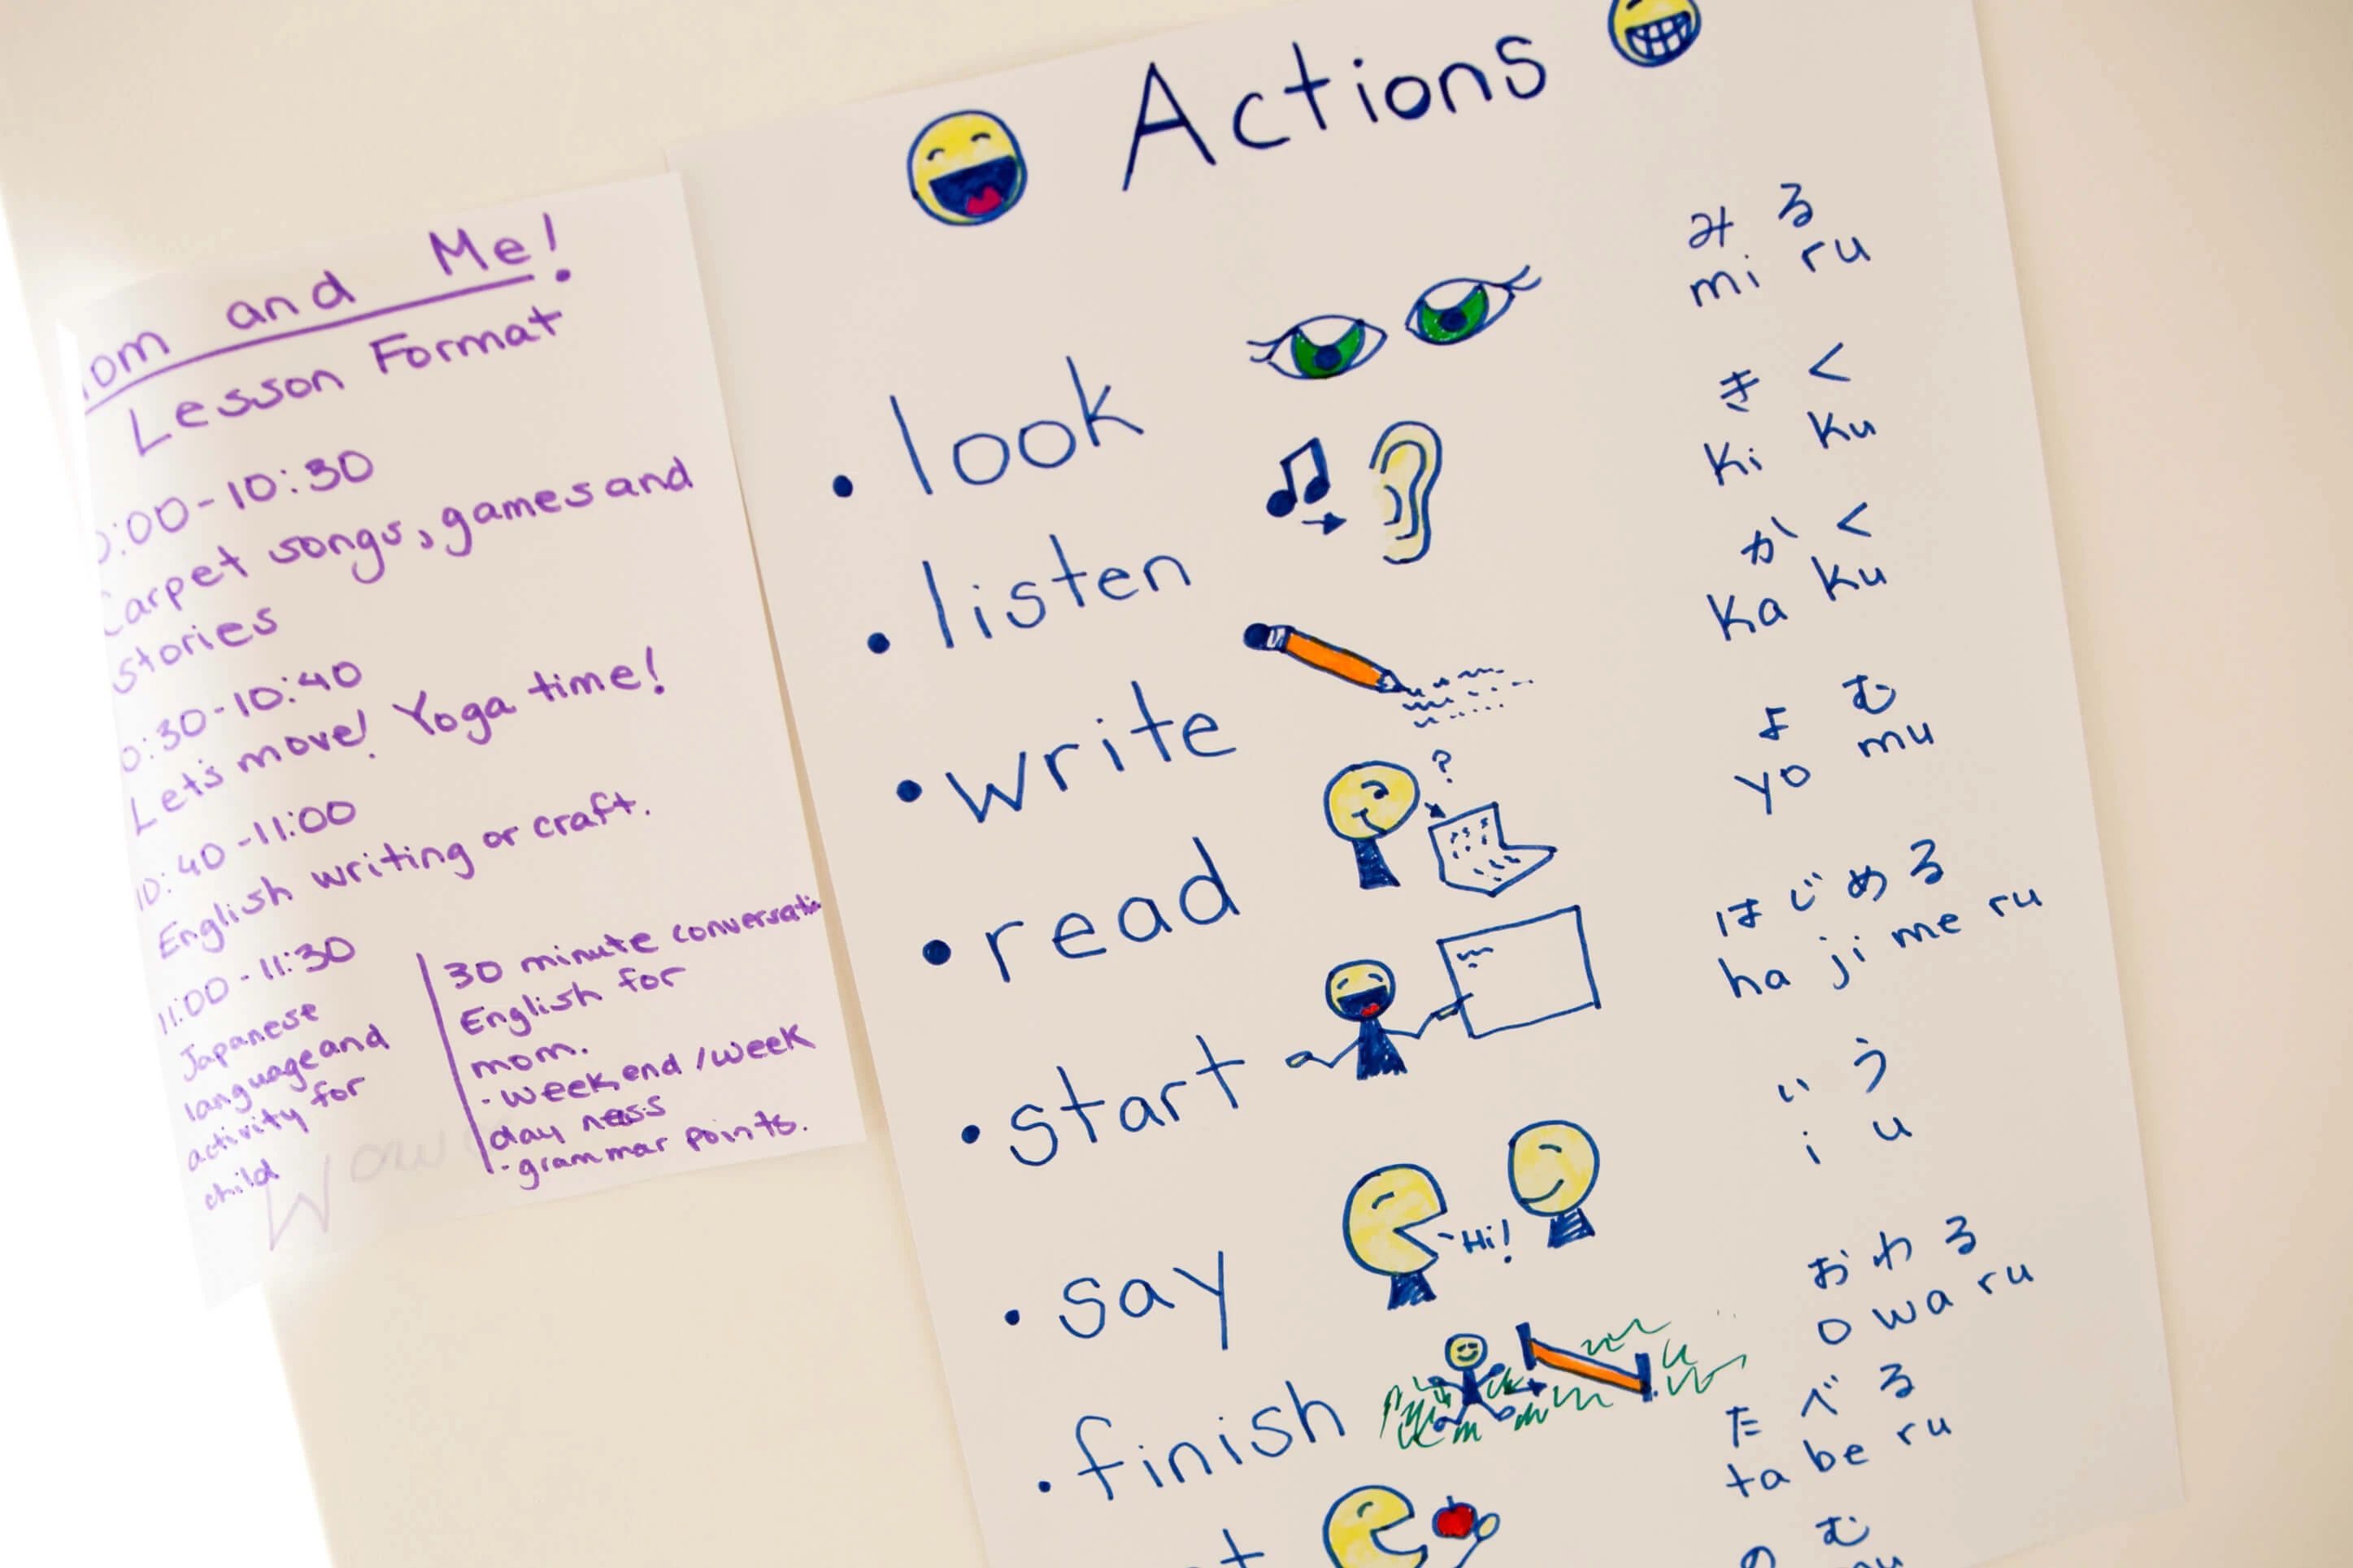 and Me!
Lesson Format
:00-10:30
Carpet songs, games and
stories
0:30-10:40
Let's move! Yoga time!
10:40-11:00
English writing or craft.
11:00-11:30
Japanese
language and
activity for
child
30 minute conversati
English for
mom.
- weekend/week
day news
- grammar points.
Actions
• look
みる
mi ru
• listen
きく
ki ku
• write
かく
ka ku
• read
?
よむ
yo mu
• start
はじめる
ha ji me ru
• say
Hi!
いう
i u
• finish
おわる
o wa ru
たべる
ta be ru
む